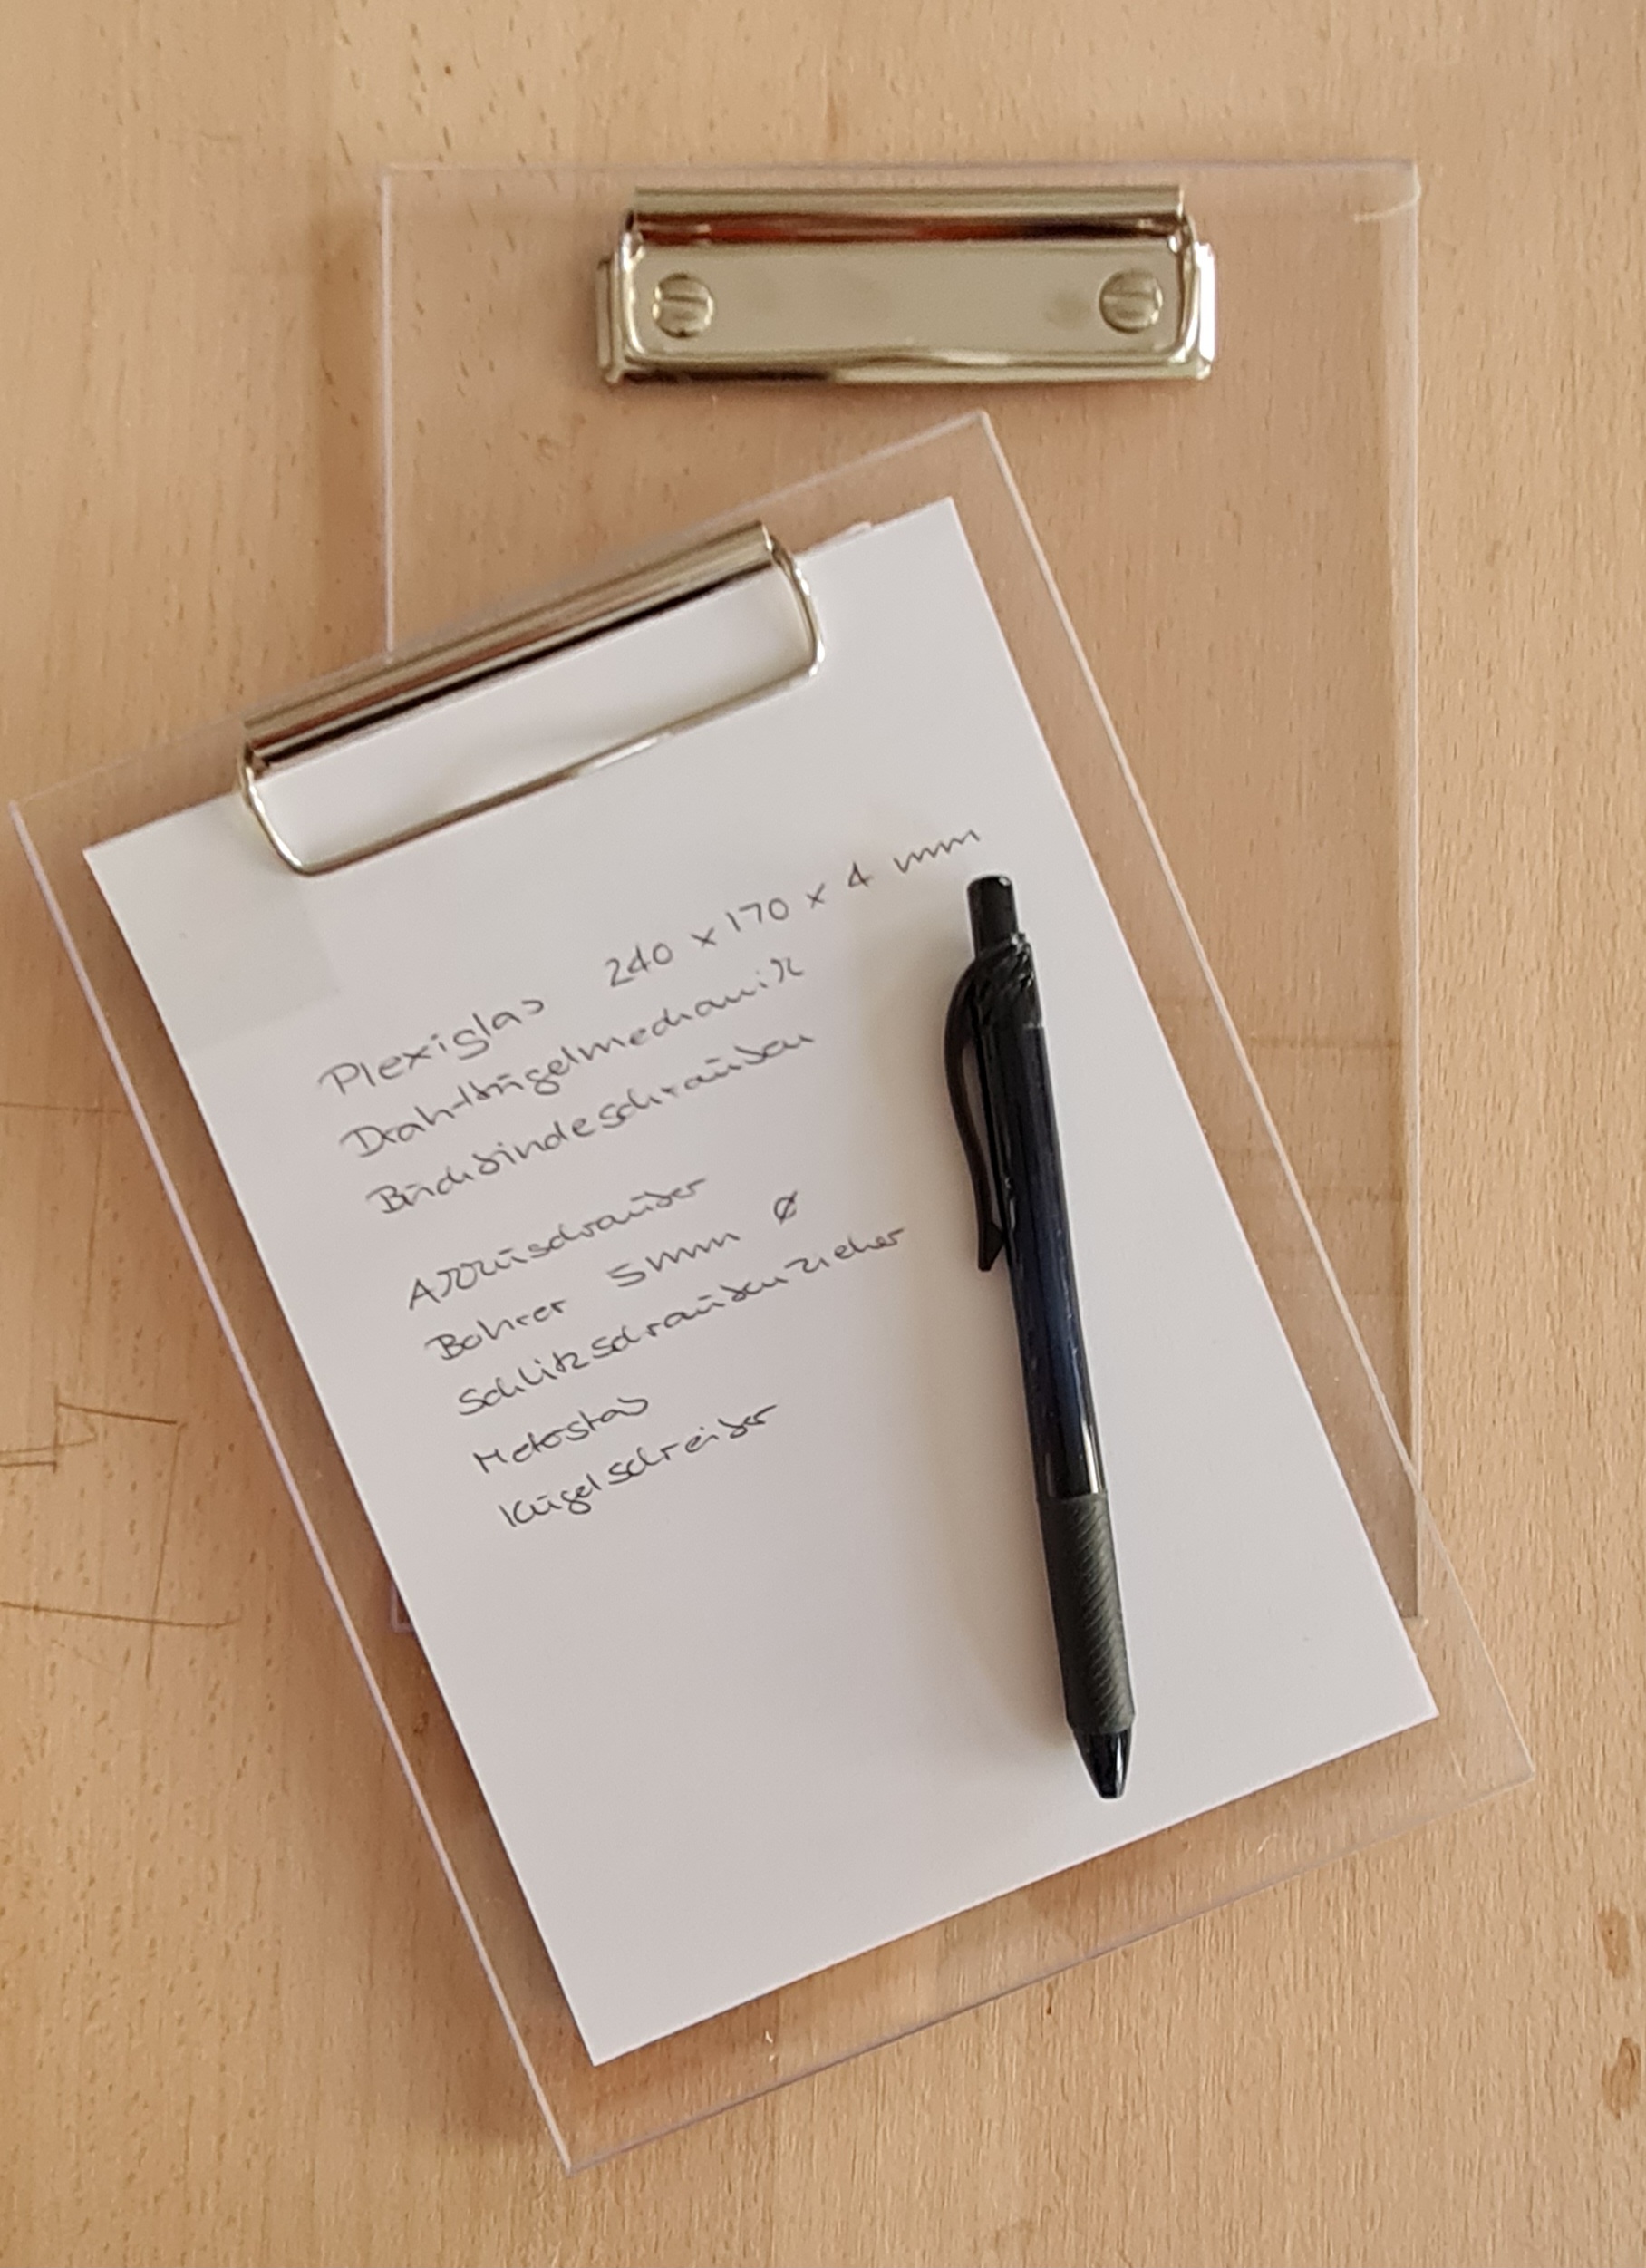 Plexiglas 240 x 170 x 4 mm
Drahtbügelmechanik
Buchbindeschrauben
Akkuschrauber
Bohrer 5mm ∅
Schlitzschraubenzieher
Meterstab
Kugelschreiber